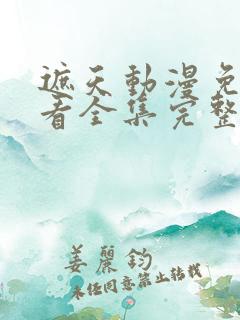 遮天動漫免
看全集完整
姜麗鈞
未任同意禁止转载